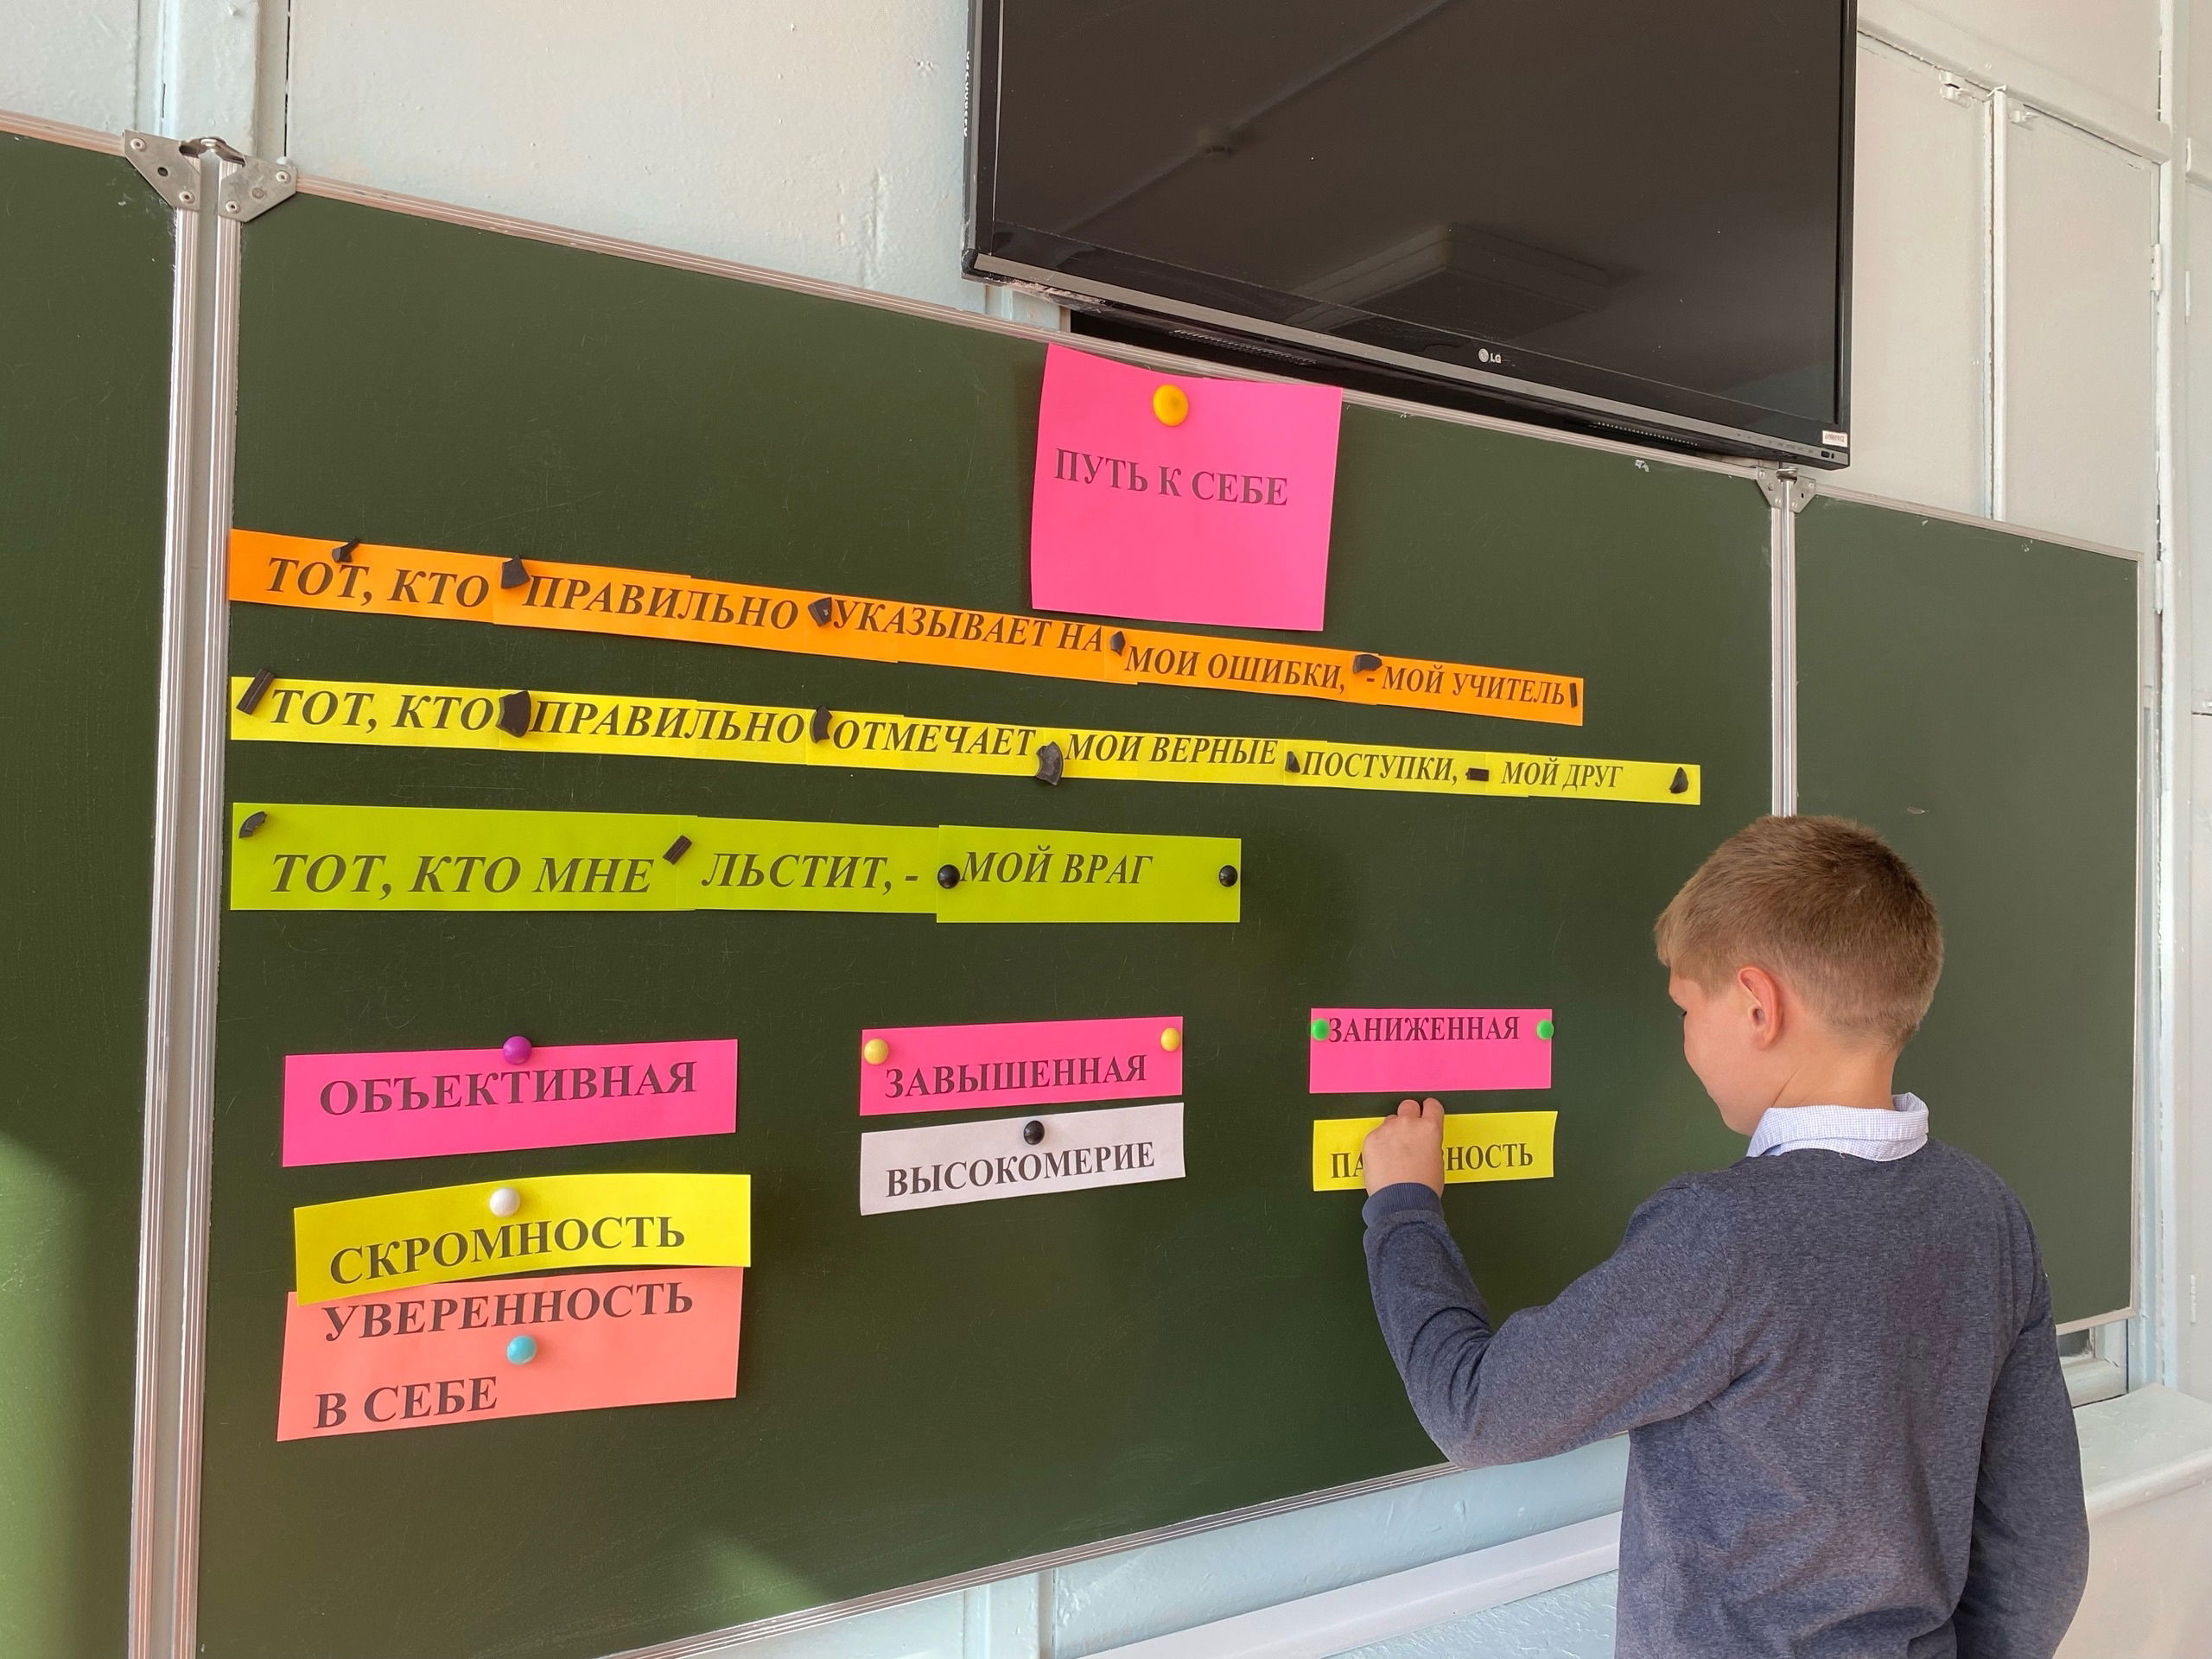 LG
ПУТЬ К СЕБЕ
ТОТ, КТО ПРАВИЛЬНО УКАЗЫВАЕТ НА МОИ ОШИБКИ, - МОЙ УЧИТЕЛЬ
ТОТ, КТО ПРАВИЛЬНО ОТМЕЧАЕТ МОИ ВЕРНЫЕ ПОСТУПКИ, - МОЙ ДРУГ
ТОТ, КТО МНЕ ЛЬСТИТ, - МОЙ ВРАГ
ОБЪЕКТИВНАЯ
СКРОМНОСТЬ
УВЕРЕННОСТЬ
В СЕБЕ
ЗАВЫШЕННАЯ
ВЫСОКОМЕРИЕ
ЗАНИЖЕННАЯ